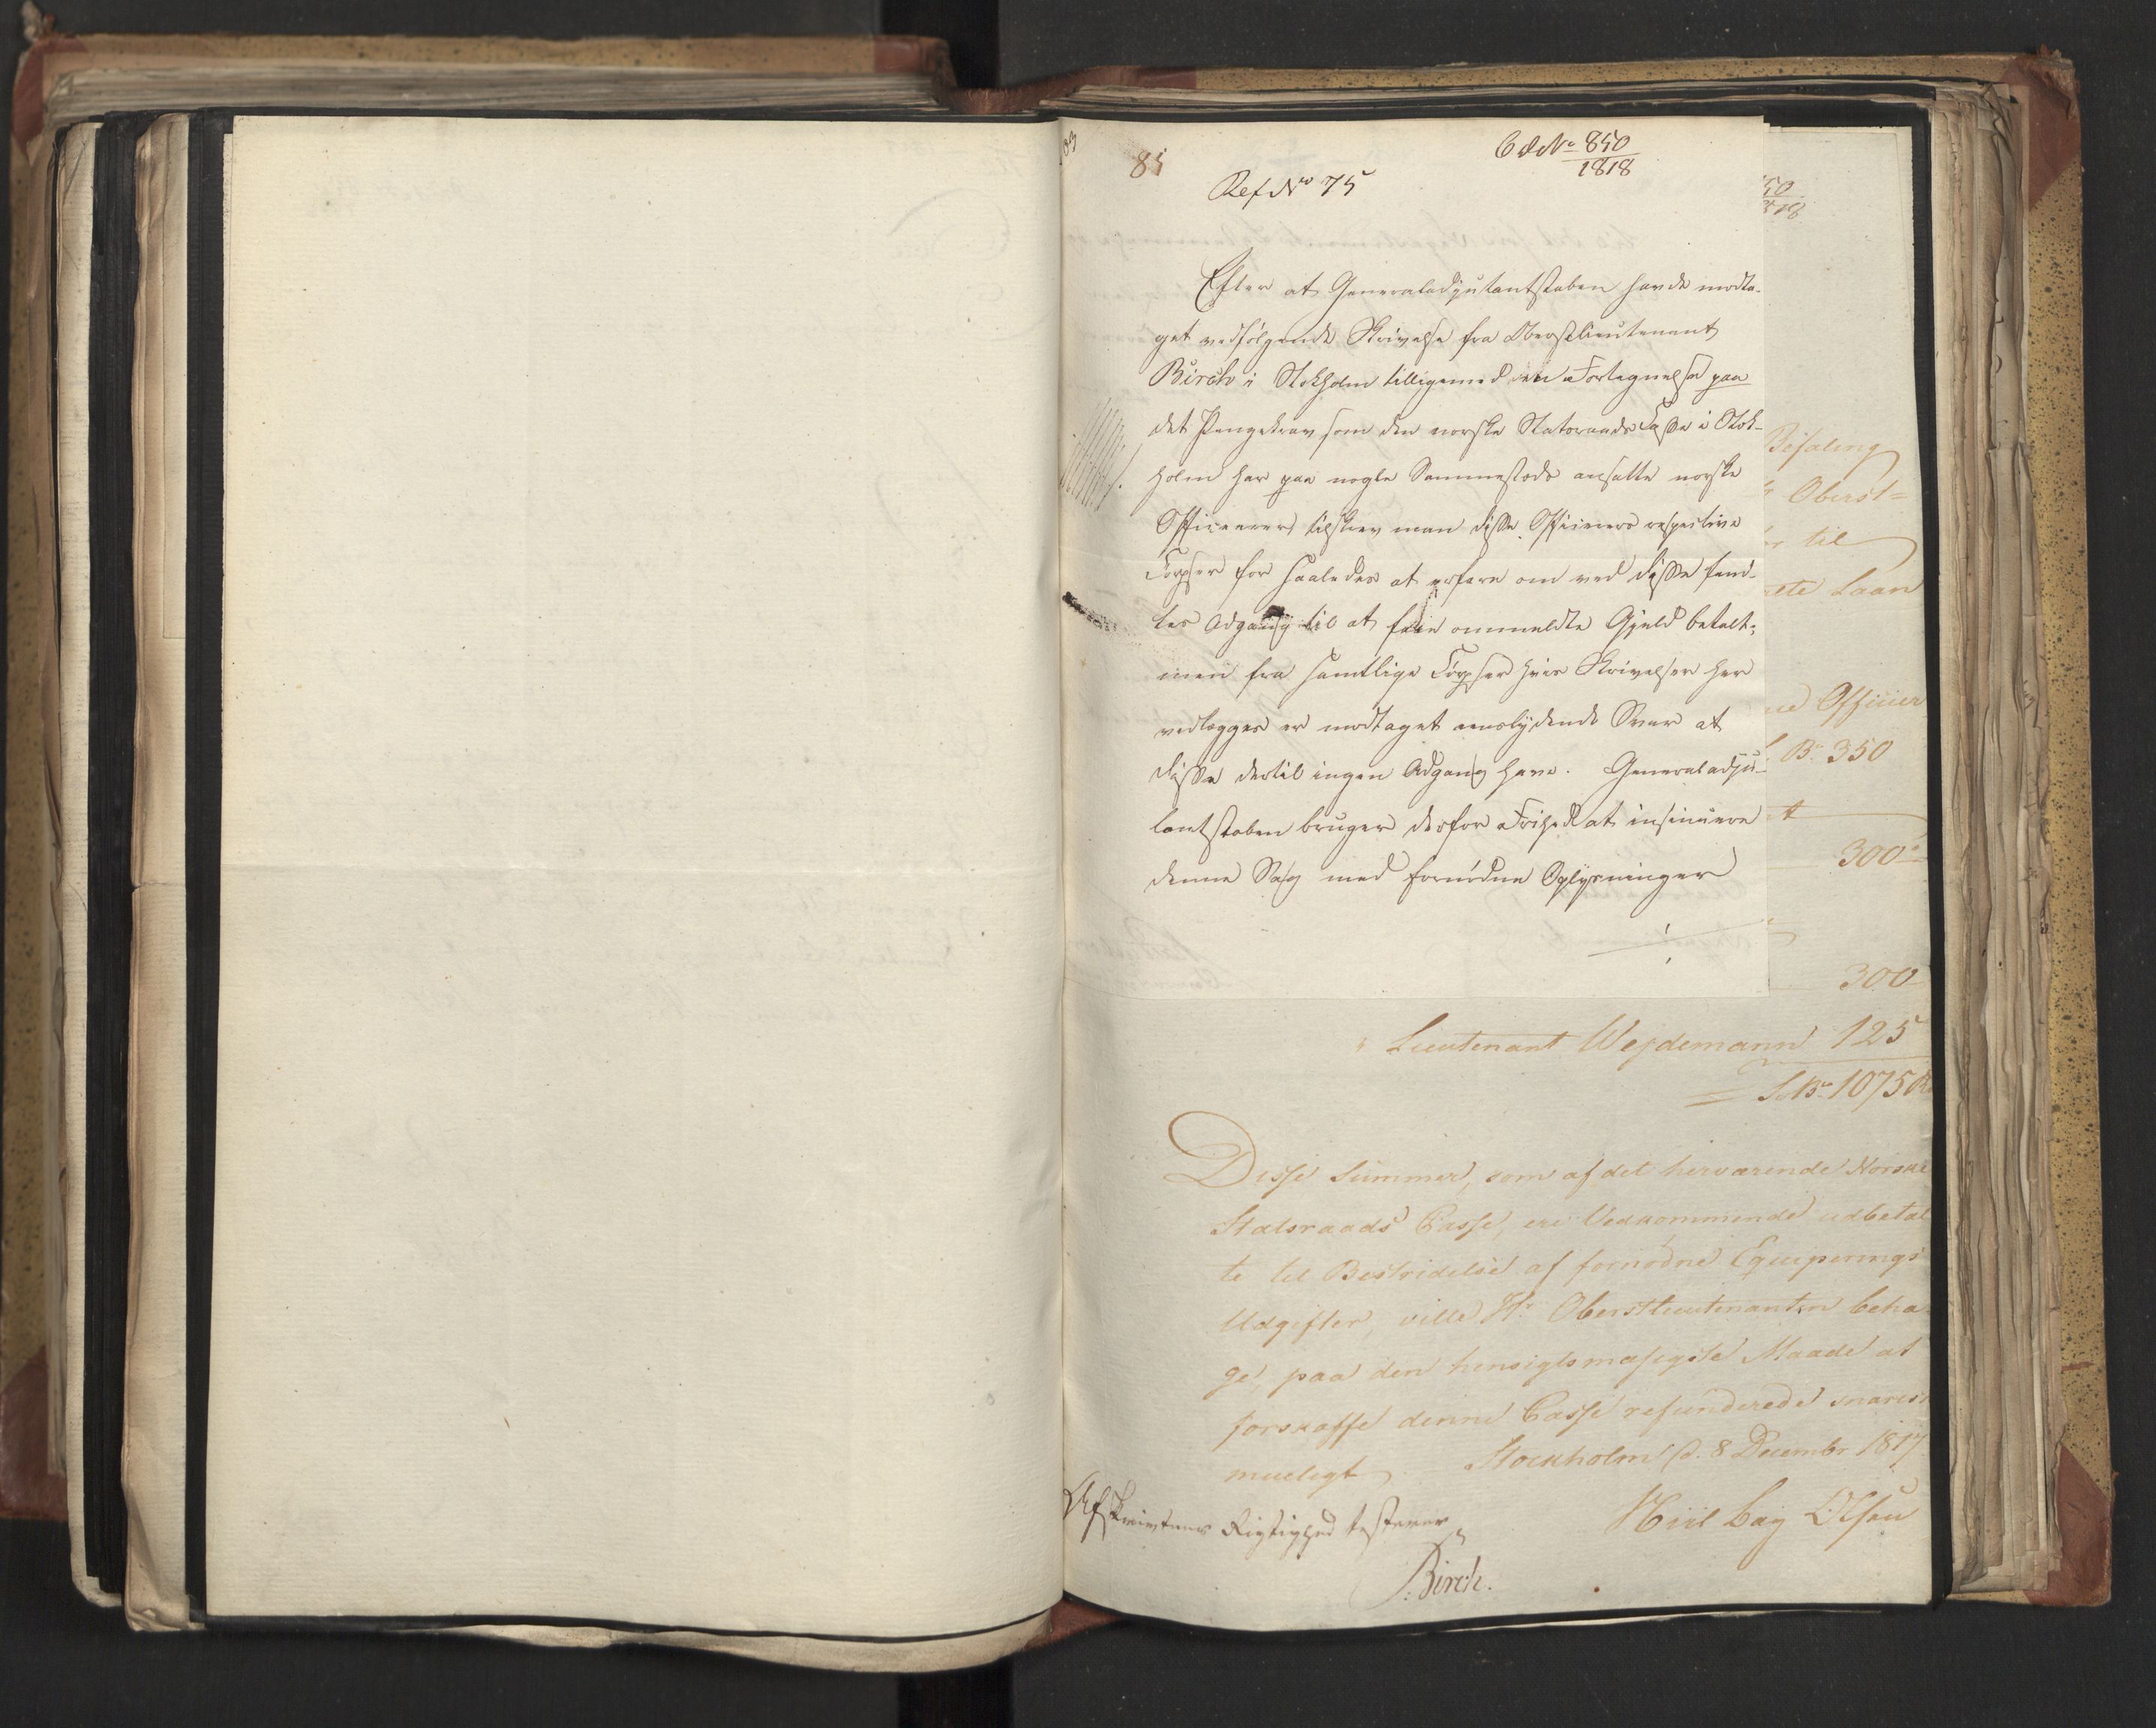 85
Cd No 850
1818
Ref No 75
Efter at Generaladjutantstaben havde modta-
get vedfølgende Skrivelse fra Oberstlieutenant
Birch i Stokholm tilligemed en Fortegnelse paa
det Pengekrav som den norske Statsraads Casse i Stok-
holm har paa nogle Sammestæds ansatte norske
Officerer, tilskrev man disse Officerers respective
Corpser for saaledes at erfare om ved disse fand-
tes Adgang til at faae ommeldte Gjeld betalt;
men fra samtlige Corpser hvis Skrivelser her
vedlægges er modtaget eenslydende Svar at
disse dertil ingen Adgang have. Generaladju-
tantstaben bruger derfor Frihed at insinuere
denne Sag med fornødne Oplysninger
50
818
Befaling
Oberst=
til
Laan
Officier
Bo 350
300
300
Lieutenant Wejdemann 125
S. Bo 1075 R
Disse Summer, som af det herværende Norske
Statsraads Casse, ere Vedkommende udbetal
te til Bestridelse af fornødne Equiperings
Udgifter, ville Hr Oberstlieutenanten beha
ge, paa den hensigtsmæssigste Maade at
forskaffe denne Casse refunderede snarest
mueligt. Stockholm d. 8 Decembr 1817
Afskrivtens Rigtighed testerer
Birch.